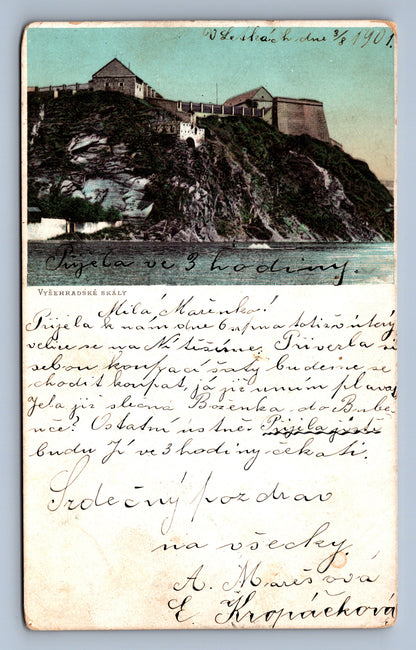 V Leskách dne 3/8 1901.
Přijela ve 3 hodiny.
VYŠEHRADSKÉ SKÁLY
Milá Mařenko!
Přijela k nám dne 6. srpna totiž v úterý
velice se na Ní těšíme. Přivezla si
sebou koupací šaty budeme se
chodit koupat, já již umím plavat
Jela již slečna Boženka do Bube
nče? Ostatní ústně. Přijela jistě
budu Jí ve 3 hodiny čekati.
Srdečný pozdrav
na všecky.
A. Marešová
E. Kropáčková